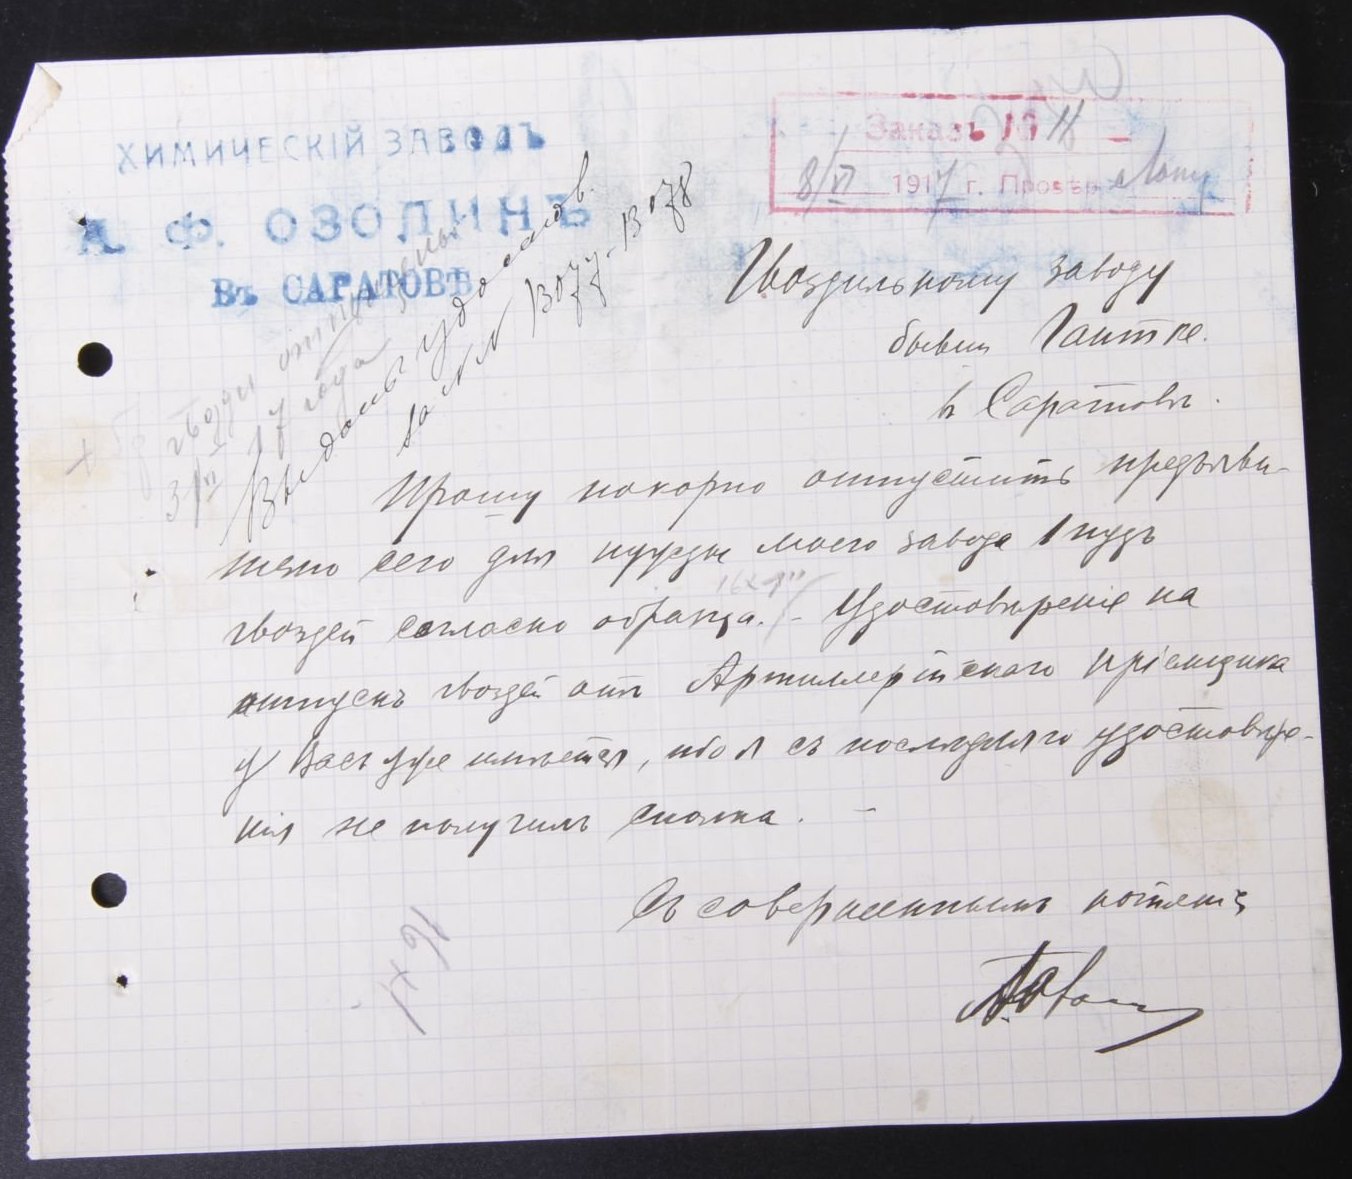 ХИМИЧЕСКІЙ ЗАВОДЪ
А. Ф. ОЗОЛИНЪ
Въ САРАТОВѢ
Заказъ
8/VI 1917 г. Провѣр.
Гвоздильному заводу
бывш Гантке.
въ Саратовѣ.
гвозди
31/VI 17 года
Выданы удостов.
за №№ 13077-13078
Прошу покорно отпустить предъяви-
телю сего для нужды моего завода 1 пудъ
гвоздей согласно образца. - Удостовѣреніе на
отпускъ гвоздей отъ Артиллерійскаго Пріемщика
у Васъ уже имѣется, ибо я съ послѣдняго удостовѣре-
нія не получилъ сполна. -
Съ совершеннымъ почтеніе
16 XI